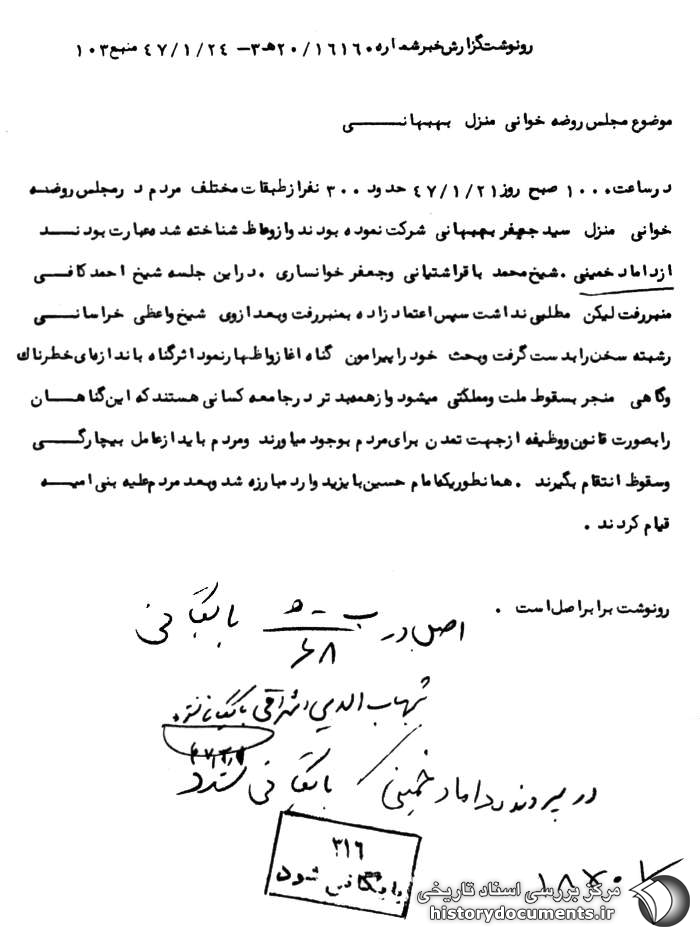 رونوشت گزارش خبر شماره ۲۰/۱۶۱۶۰ ه‍ ۳ - ۴۷/۱/۲۴ منبع ۱۰۳
موضوع مجلس روضه خوانی منزل بهبهانــــی
در ساعت ۱۰۰۰ صبح روز ۴۷/۱/۲۱ حدود ۳۰۰ نفر از طبقات مختلف مردم در مجلس روضه
خوانی منزل سید جعفر بهبهانی شرکت نموده بودند و از وعاظ شناخته شده عبارت بودنـــد
از داماد خمینی . شیخ محمد باقر اشتیانی و جعفر خوانساری . در این جلسه شیخ احمد کافـــی
منبر رفت لیکن مطلبی نداشت سپس اعتماد زاده بمنبر رفت و بعد از وی شیخ واعظی خراسانـــی
رشته سخن را بدست گرفت و بحث خود را پیرامون گناه اغاز و اظهار نمود اثر گناه باندازه‌ای خطرناک
و گاهی منجر بسقوط ملت و مملکتی میشود و از همه بد تر در جامعه کسانی هستند که این گناهـــان
را بصورت قانون و وظیفه از جهت تمدن برای مردم بوجود میاورند و مردم باید از عامل بیچارگـــی
و سقوظ انتقام بگیرند . همانطوریکه امام حسین با یزید وارد مبارزه شد و بعد مردم علیه بنی امیـــه
قیام کردند .
رونوشت برابر اصل است .
اصل در ب - ه‍ ۶۸ بایگانی
شهاب الدین اشراقی
در پرونده داماد خمینی بایگانی شود
۳۱۶
بایگانی شود
۱۸۷۰۷
مرکز بررسی اسناد تاریخی
historydocuments.ir